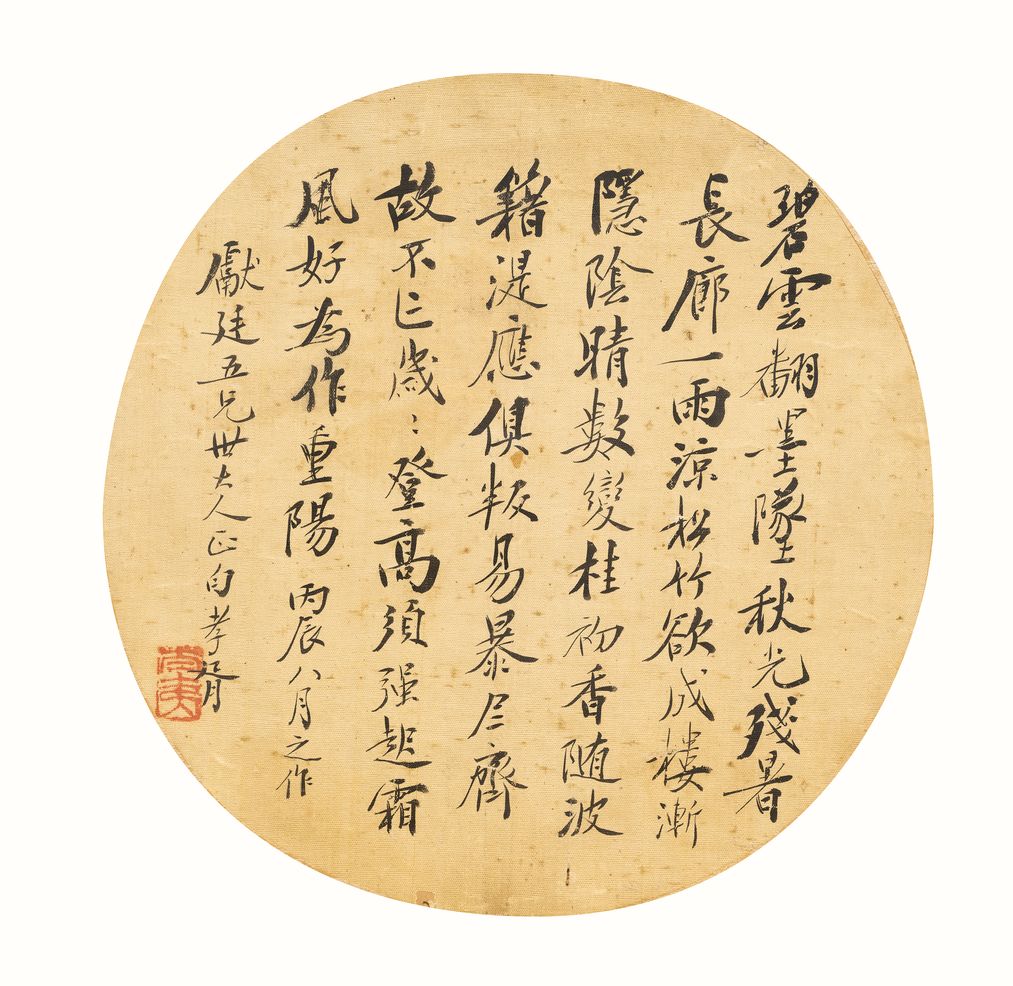 碧雲翻墨墜秋光殘暑
長廊一雨涼松竹欲成樓漸
隱陰晴數變桂初香随波
籍湜應俱叛易暴𡰥齊
故不亡歲〻登高須强起霜
風好為作重陽 丙辰八月之作
獻廷五兄世大人正句 孝胥